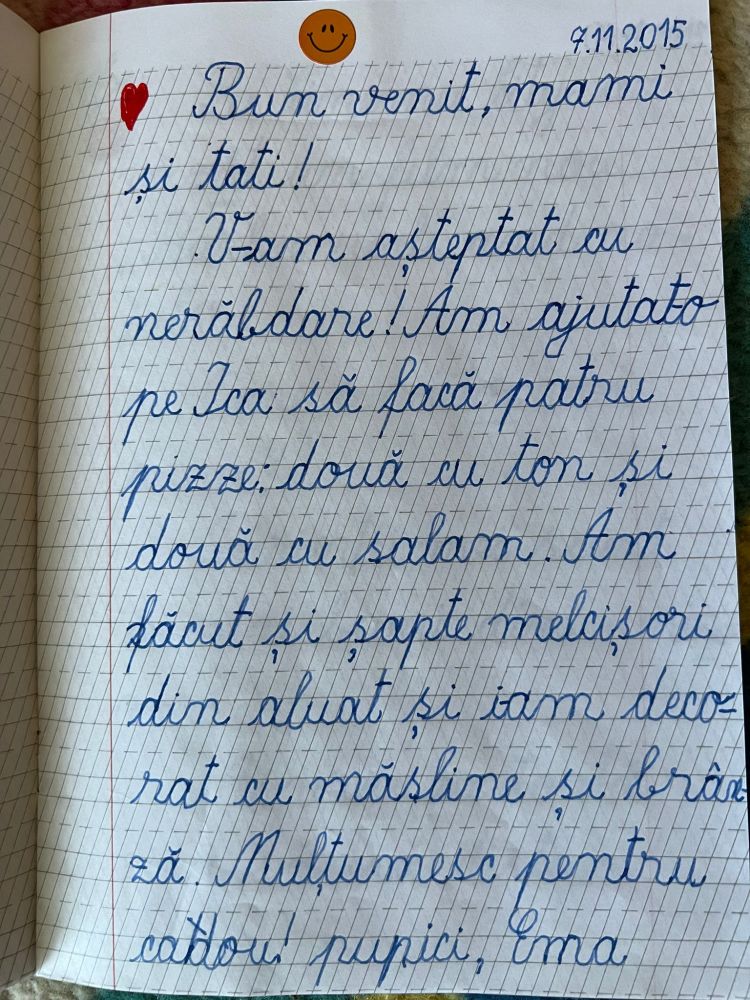 7.11.2015
Bun venit, mami
și tati!
V-am așteptat cu
nerăbdare! Am ajutat-o
pe Ica să facă patru
pizze: două cu ton și
două cu salam. Am
făcut și șapte melcișori
din aluat și i-am deco-
rat cu măsline și brân-
ză. Mulțumesc pentru
cadou! pupici, Ema